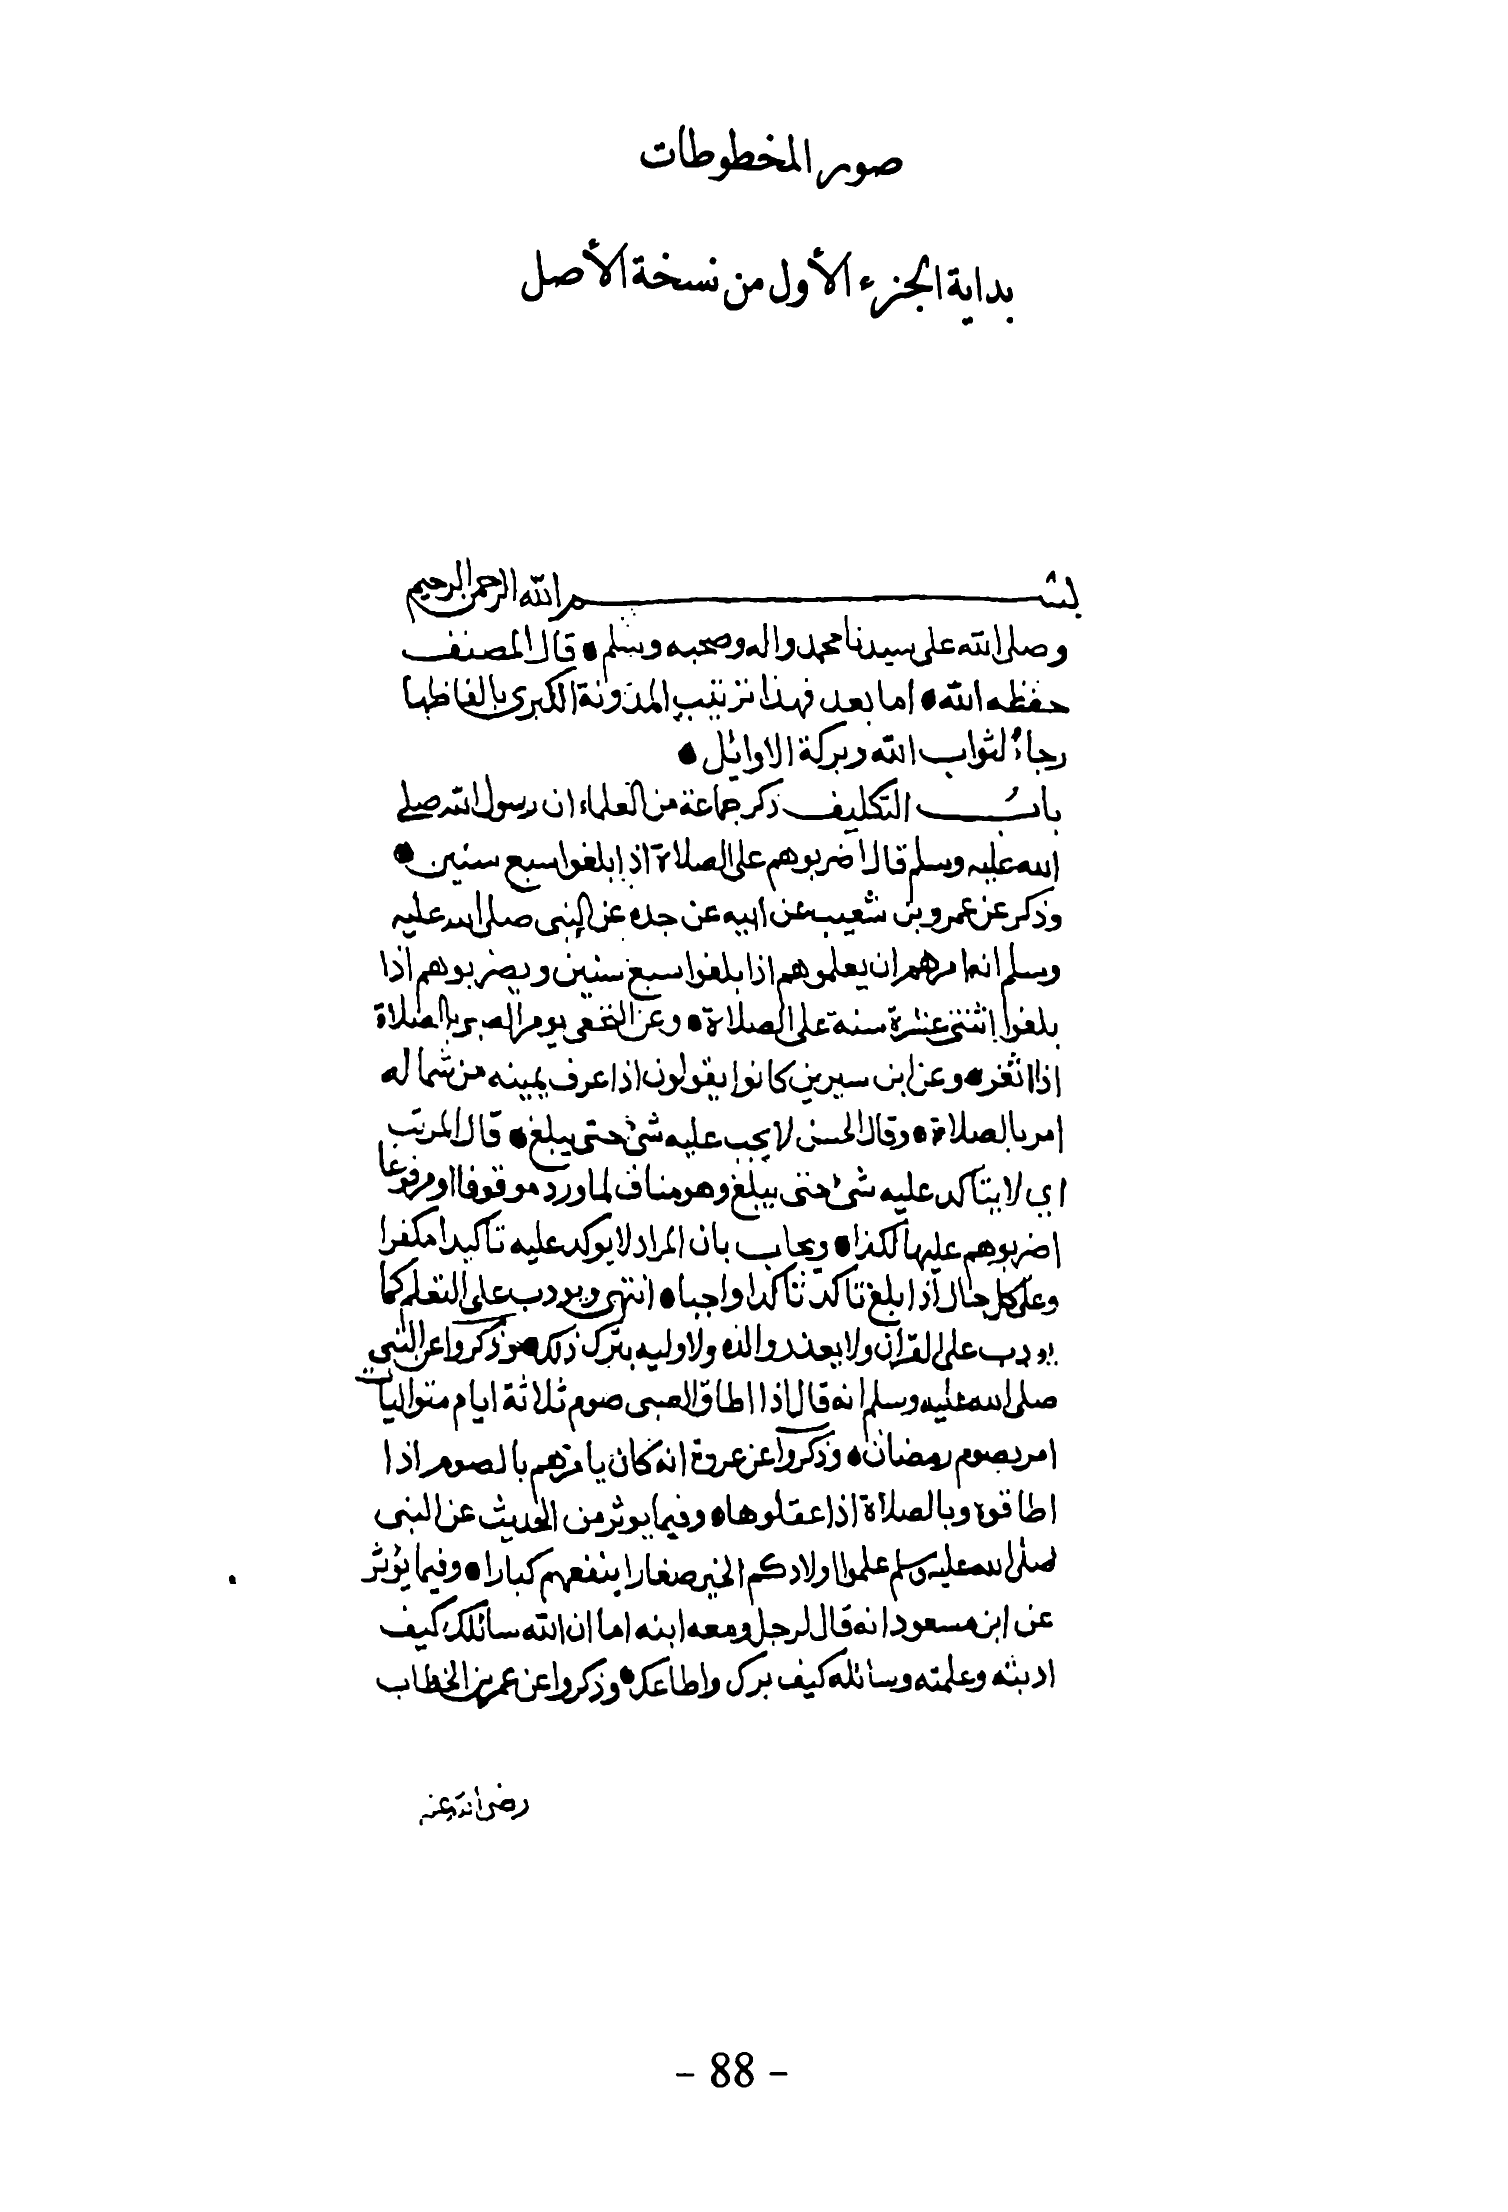 صور المخطوطات
بداية الجزء الأول من نسخة الأصل
بسم الله الرحمن الرحيم
وصلى الله على سيدنا محمد واله وصحبه وسلم • قال المصنف
حفظه الله • اما بعد فهذا ترتيب المدونة الكبرى بالفاظها
رجاءً لثواب الله وبركة الاوايل •
بابُ التكليف ذكر جماعة من العلماء ان رسول الله صلى
الله عليه وسلم قال اضربوهم على الصلاة اذا بلغوا سبع سنين •
وذكر عن عمرو بن شعيب عن ابيه عن جده عن النبي صلى الله عليه
وسلم انه امرهم ان يعلموهم اذا بلغوا سبع سنين ويضربوهم اذا
بلغوا اثنتي عشرة سنة على الصلاة • وعن النخعي يومر الصبي بالصلاة
اذا اثغر • وعن ابن سيرين كانوا يقولون اذا عرف يمينه من شماله
امر بالصلاة • وقال الحسن لا يجب عليه شئ حتى يبلغ • قال المرتب
اي لا يتأكد عليه شئ حتى يبلغ وهو مناف لما ورد موقوفا او مرفوعا
اضربوهم عليها لكذا • ويجاب بان المراد لا يوكد عليه تاكيدا مكفرا
وعلى كل حال اذا بلغ تاكد تاكدا واجبا • انتهى ويودب على التعلم كما
يودب على القرآن ولا يعذر والده ولا وليه بترك ذلك • وذكروا عن النبي
صلى الله عليه وسلم انه قال اذا اطاق الصبي صوم ثلاثة ايام متواليات
امر بصوم رمضان • وذكروا عن عروة انه كان يامرهم بالصوم اذا
اطاقوه وبالصلاة اذا عقلوها • وفيما يوثر من الحديث عن النبي
صلى الله عليه وسلم علموا اولادكم الخير صغارا ينفعهم كبارا • وفيما يؤثر
عن ابن مسعود انه قال لرجل ومعه ابنه اما ان الله سائلك كيف
ادبته وعلمته وسائله كيف برك واطاعك • وذكروا عن عمر بن الخطاب
رضى الله عنه
- 88 -